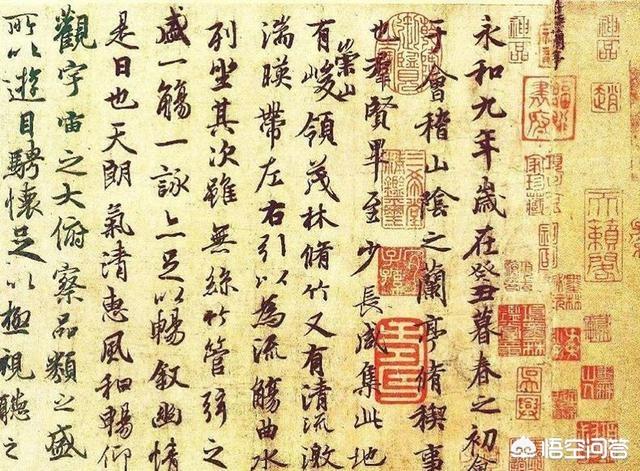 神品
趙
天籟閣
神品
永和九年歲在癸丑暮春之初會
于會稽山陰之蘭亭脩稧事
也羣賢畢至少長咸集此地
有崇山峻領茂林脩竹又有清流激
湍暎帶左右引以為流觴曲水
列坐其次雖無絲竹管弦之
盛一觴一詠亦足以暢叙幽情
是日也天朗氣清惠風和暢仰
觀宇宙之大俯察品類之盛
所以遊目騁懷足以極視聽之
三希堂精鑑璽
悟空问答